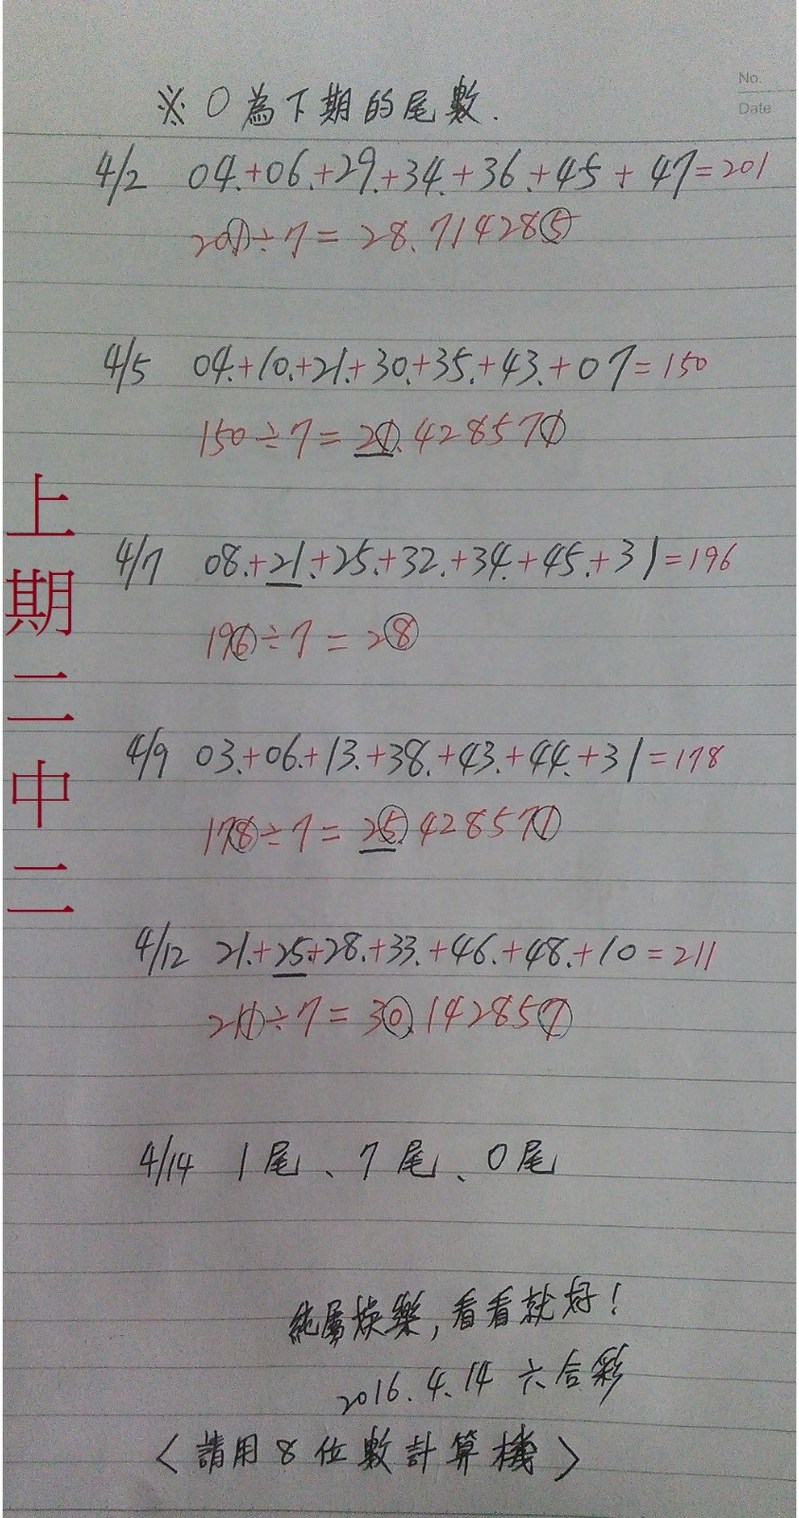 No.
Date
※ ○為下期的尾數.
4/2 04.+06.+29.+34.+36.+45+47=201
201÷7=28.714285
4/5 04.+10.+21.+30.+35.+43.+07=150
150÷7=21.428571
4/7 08.+21.+25.+32.+34.+45.+31=196
196÷7=28
4/9 03.+06.+13.+38.+43.+44.+31=178
178÷7=25.428571
4/12 21.+25.+28.+33.+46.+48.+10=211
211÷7=30.142857
4/14 1尾、7尾、0尾
純屬娛樂,看看就好!
2016.4.14 六合彩
〈請用8位數計算機〉
上期二中二